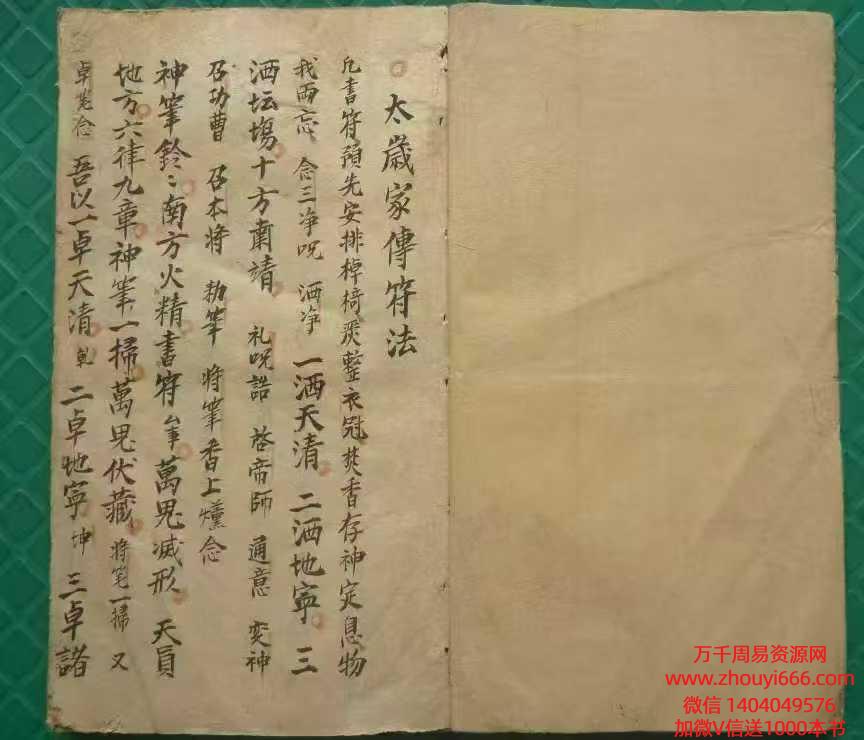 太歲家傳符法
凡書符預先安排棹椅畢整衣冠焚香存神定息物
我両忘 念三净呪 洒净 一洒天清 二洒地寧 三
洒坛塲十方肅靖 礼呪誥 啓帝師 通意 变神
召功曹 召本将 勅筆 将筆香上燻念
神筆鈴〻南方火精書符 萬鬼滅形 天員
地方六律九章神筆一掃萬鬼伏藏 将笔一掃 又
卓笔念 吾以一卓天清 乾 二卓地寧 坤 三卓諸
万千周易资源网
www.zhouyi666.com
微信 1404049576
加微V信送1000本书